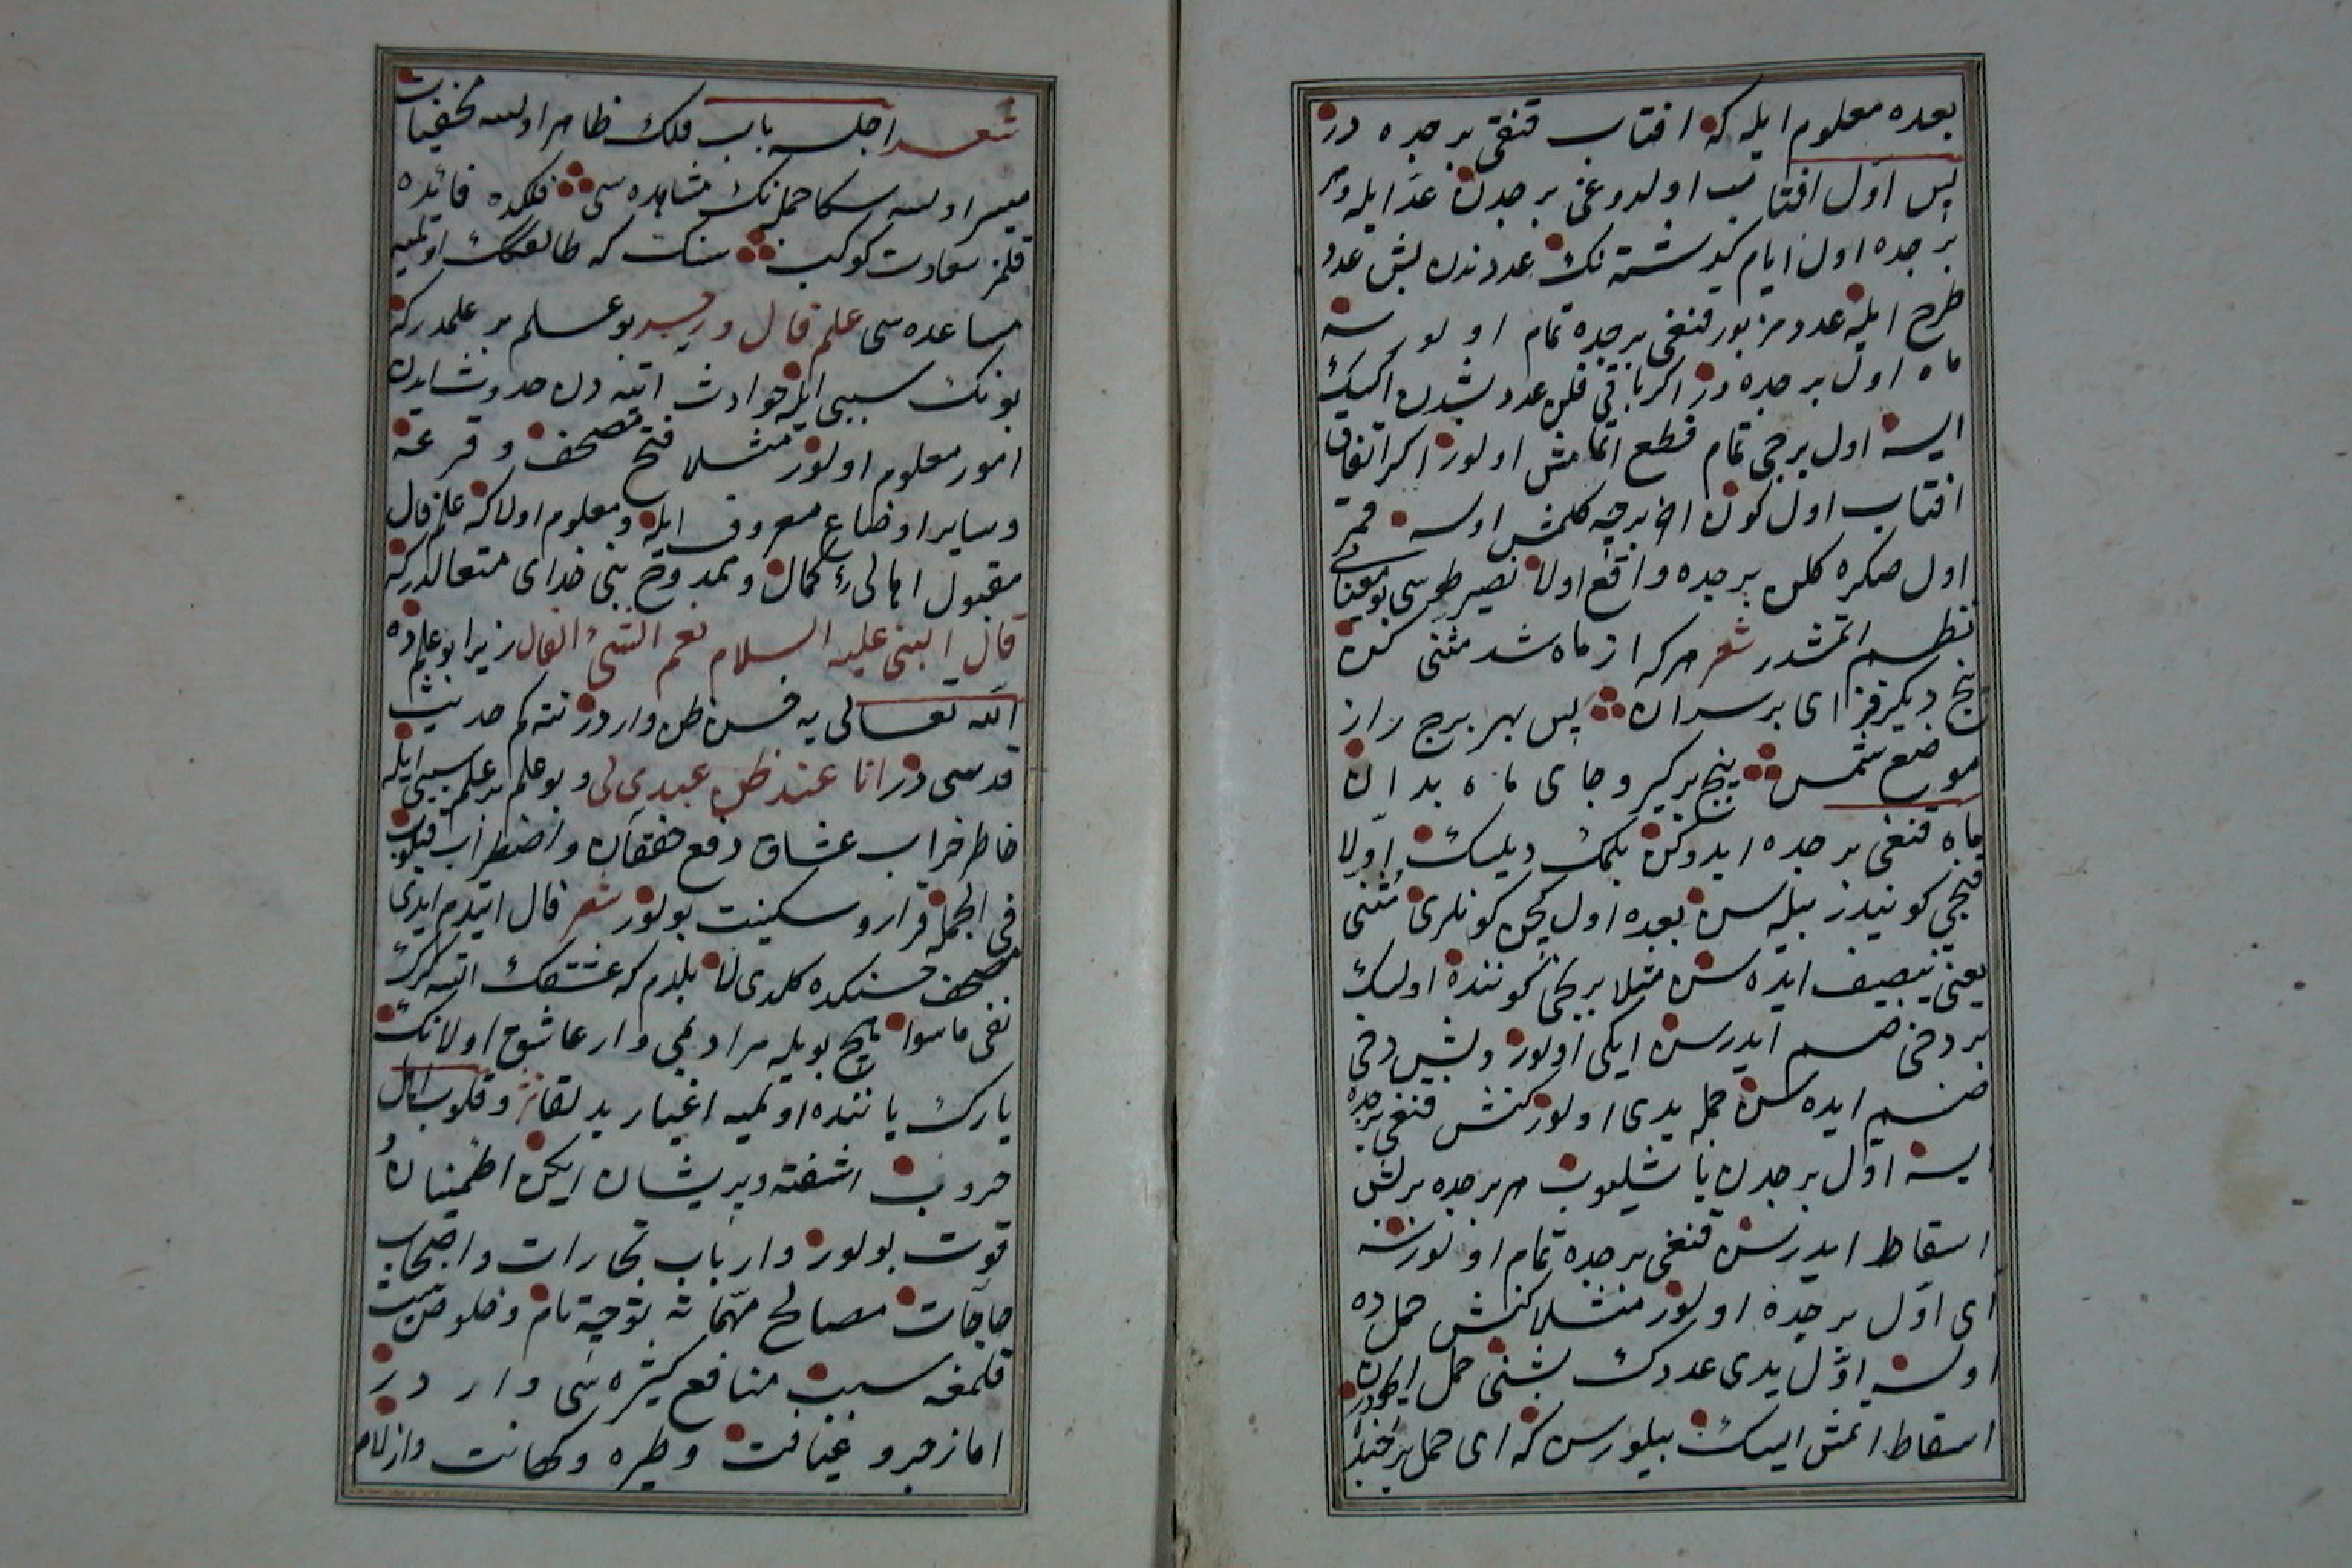 بعده معلوم ایله که افتاب قنغی برجده در
پس اول افتاب اولدوغی برجدن عدّ ایله و هر
برجده اول ایام گذشته نک عددندن بش عدد
طرح ایله عدد مزبور قنغی برجده تمام اولورسه
ماه اول برجده در اکر باقی قلن عدد بشدن اکسک
ایسه اول برجی تمام قطع اتمامش اولور اکر اتفاق
افتاب اول کون اخر برجه کلمش اولسه قمر
اول صکره کلن برجده واقع اولا نصیر طوسی بو معنایی
نظم اتمشدر شعر هرکه از ماه شد مثنی کن
پنج دیکر فزای بر سران پس بهر برج راز
موضع شمس پنج برگیر و جای ماه بدان
ماه قنغی برجده ایدوکن بلمک دیلسک اولا
قنجی کونیدر بیله سن بعده اول کچن کونلری مثنی
یعنی تنصیف ایده سن مثلا برنجی کوننده اولسک
بر دخی ضم ایدرسن ایکی اولور و بش دخی
ضم ایده سن جمله یدی اولور کنش قنغی برجده
ایسه اول برجدن باشلیوب هر برجده بر بش
اسقاط ایدرسن قنغی برجده تمام اولورسه
ای اول برجده اولور مثلا کنش حمل ده
اولسه اول یدی عددک بشنی حمل ایچون
اسقاط اتمش اولسک بیلورسن که ای حمل برجنده
شعر اجلسه باب فلک ظاهر اولسه مخفیات
میسر اولسه سکا جمله نک مشاهده سی فلکده فائده
قلمز سعادت کوکب سنک که طالعکک اولمیه
مساعده سی علم فال و زجر بو علم بر علمدرکه
بونک سببی ایله حوادث اتیه دن حدوث ایدن
امور معلوم اولور مثلا فتح مصحف و قرعه
و سایر اوضاع معروف ایله و معلوم اولاکه علم فال
مقبول اهالی کمال و ممدوح نبی خدای متعالدرکه
قال النبی علیه السلام نعم الشیء الفال زیرا بو علمده
الله تعالی یه حسن ظن واردر نته کم حدیث
قدسی در انا عند ظن عبدی لی و بو علم بر علم سببی ایله
خاطر خراب عشاق دفع خفقان و اضطراب قیلوب
فی الجمله قرار و سکینت بولور شعر فال ایتدم ایدی
مصحف حسنکده کلدی لا بلدم که عشقک اتسه کرک
نفی ماسوا هیچ بویله مرادمی وار عاشق اولانک
یارک یاننده اولمیه اغیار بد لقا و قلوب اهل
حروب اشفته و پریشان ایکن اطمینان و
قوت بولور و ارباب تجارات و اصحاب
حاجات مصالح مهماته توجه تام و خلوص نیت
قلمغه سبب منافع کثیره سی وار در
اما زجر و عیافت و طیره و کهانت و ازلام